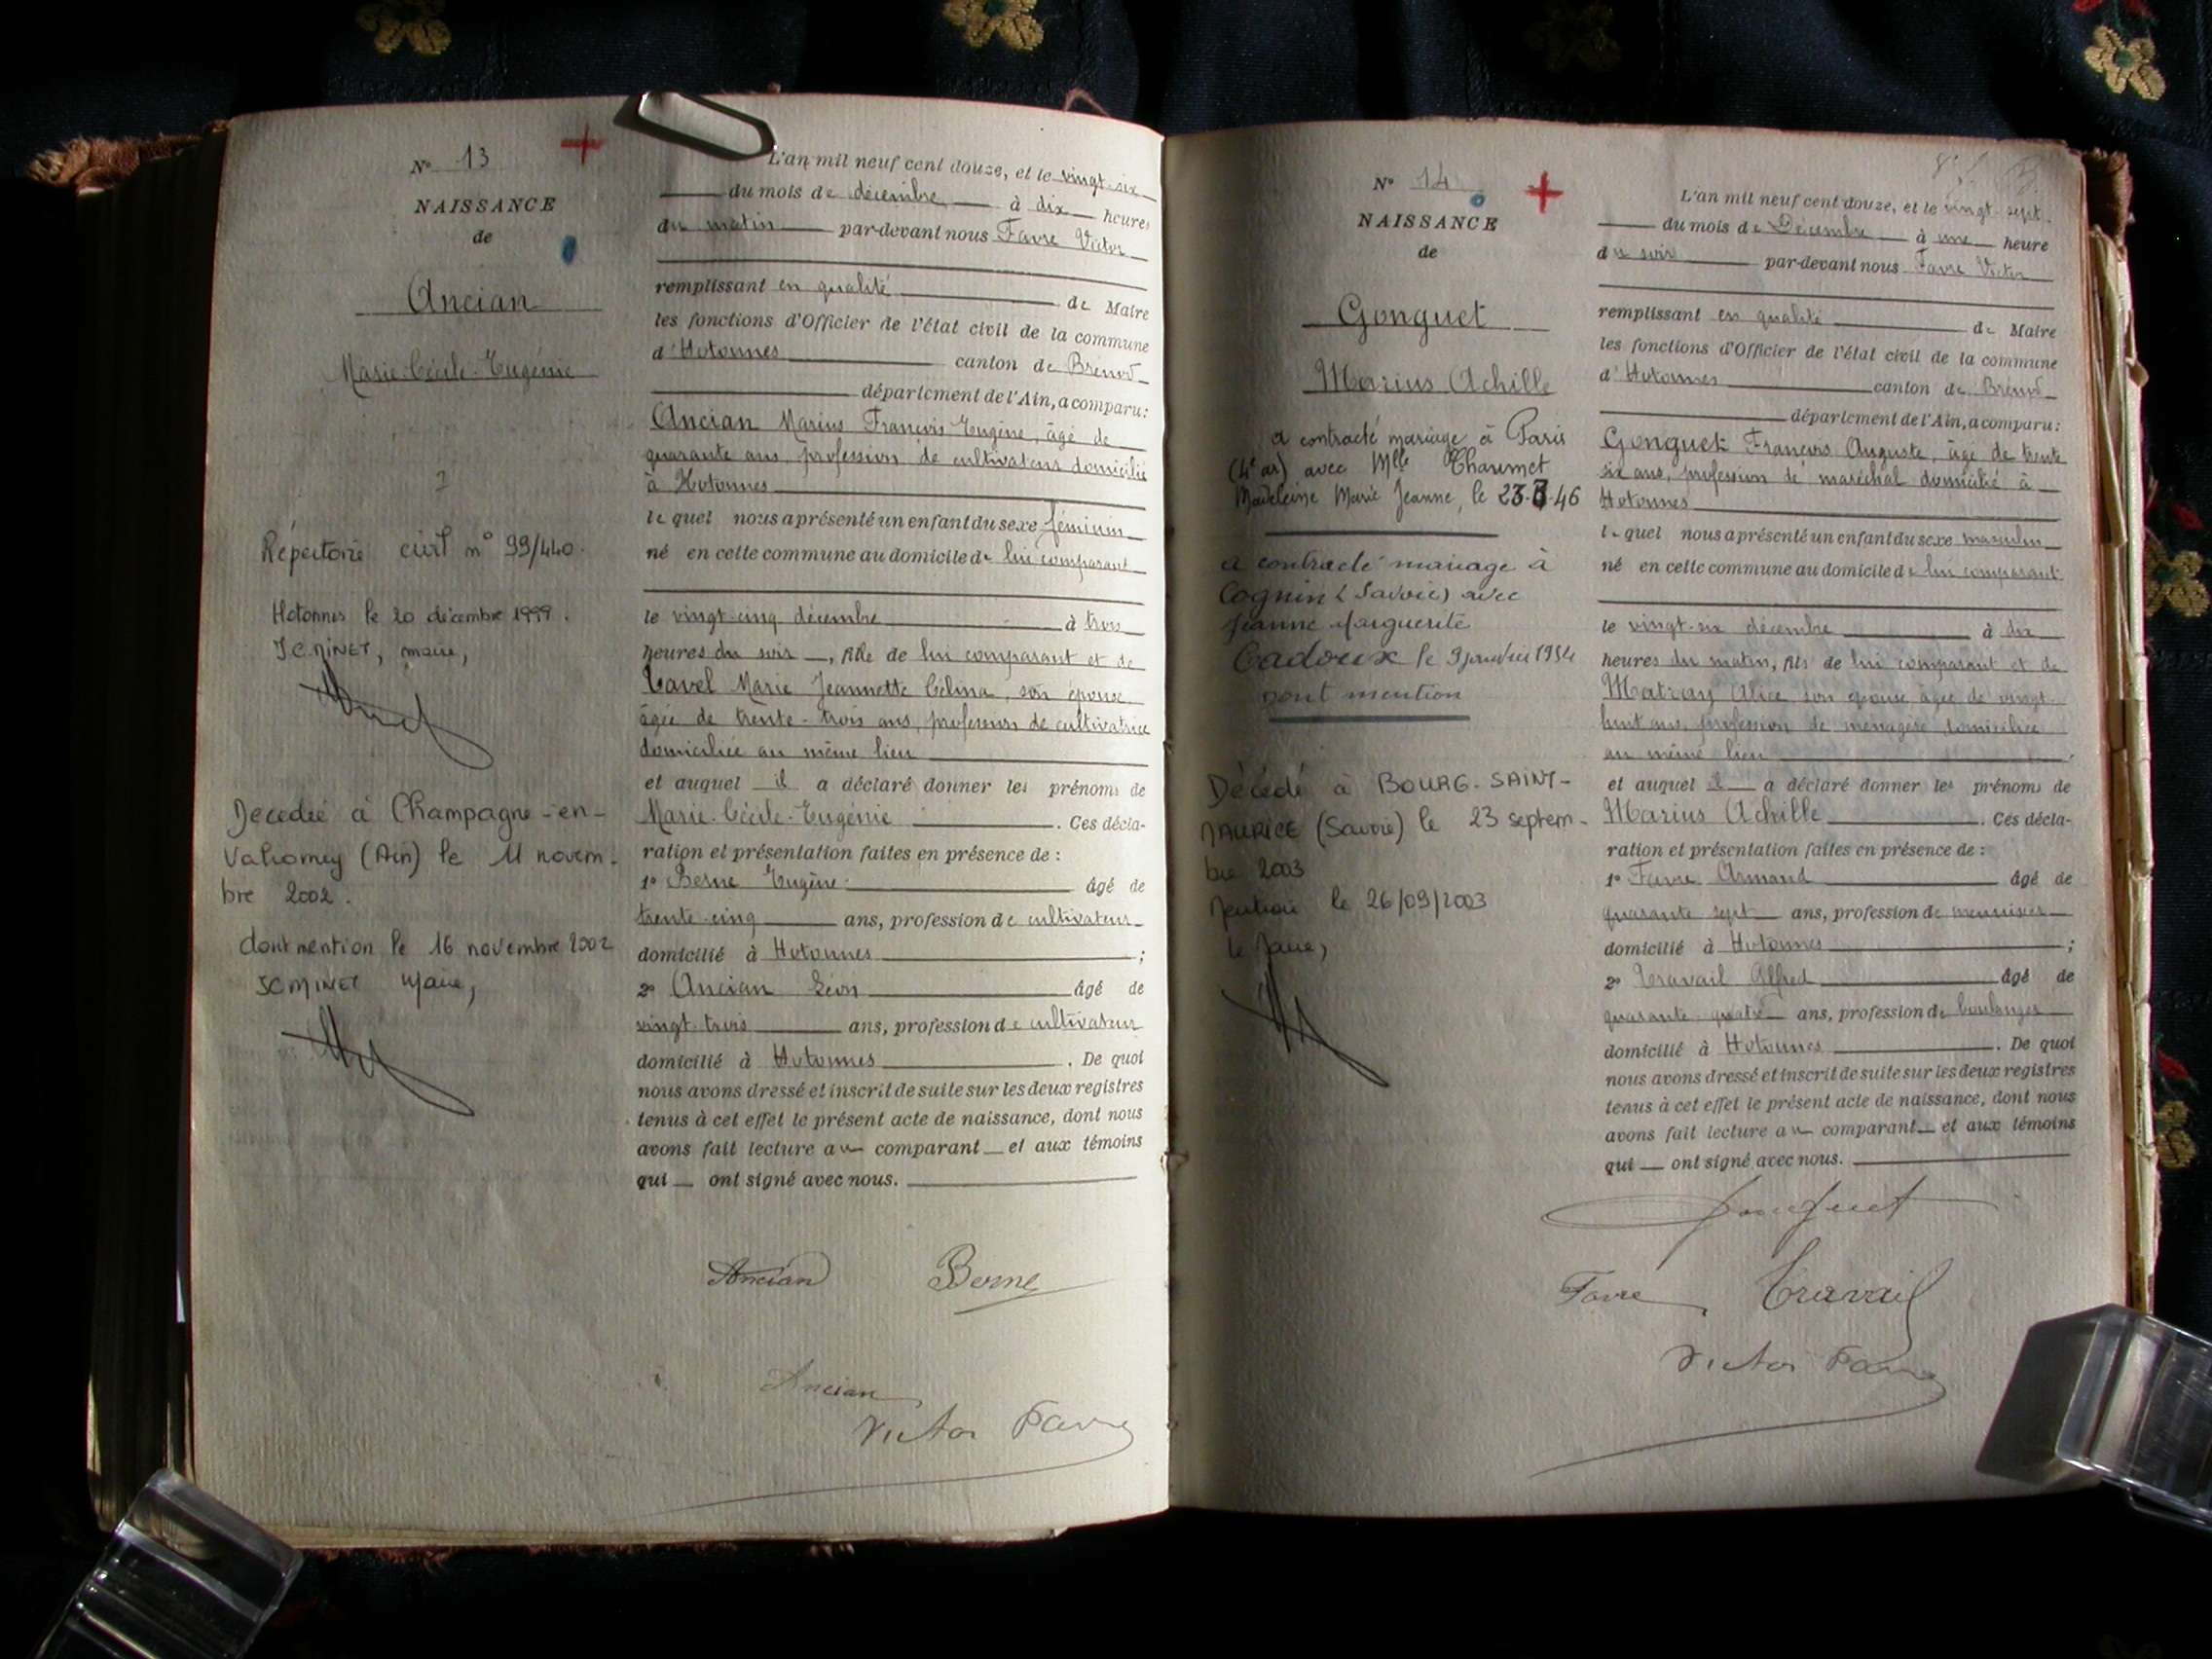 N° 13
NAISSANCE
de
Ancian
Marie-Cécile-Eugénie
Répertoire civil n° 99/440.
Hotonnes le 20 décembre 1999.
JC MINET, maire,
Décédée à Champagne-en-
Valromey (Ain) le 11 novem-
bre 2002.
dont mention le 16 novembre 2002
JC MINET Maire,
L'an mil neuf cent douze, et le vingt-six
du mois de décembre à dix heures
du matin par-devant nous Favre Victor
remplissant en qualité de Maire
les fonctions d'Officier de l'état civil de la commune
d'Hotonnes canton de Brénod
département de l'Ain, a comparu:
Ancian Marius François Eugène, âgé de
quarante ans, profession de cultivateur domicilié
à Hotonnes
lequel nous a présenté un enfant du sexe féminin
né en cette commune au domicile de lui comparant
le vingt-cinq décembre à trois
heures du soir, fille de lui comparant et de
Tavel Marie Jeannette Célina, son épouse
âgée de trente-trois ans, profession de cultivatrice
domiciliée au même lieu
et auquel il a déclaré donner les prénoms de
Marie-Cécile-Eugénie. Ces décla-
ration et présentation faites en présence de :
1° Berne Eugène âgé de
trente-cinq ans, profession de cultivateur
domicilié à Hotonnes ;
2° Ancian Léon âgé de
vingt-trois ans, profession de cultivateur
domicilié à Hotonnes. De quoi
nous avons dressé et inscrit de suite sur les deux registres
tenus à cet effet le présent acte de naissance, dont nous
avons fait lecture au comparant et aux témoins
qui ont signé avec nous.
Ancian Berne
Ancian
Victor Favre
N° 14
NAISSANCE
de
Gonguet
Marius Achille
a contracté mariage à Paris
(4e ar) avec Mlle
Madeleine Marie Jeanne, le 46
a contracté mariage à
Cognin (Savoie) avec
Jeanne Marguerite
Cadoux le 9 janvier 1954
dont mention
Décédé à BOURG-SAINT-
MAURICE (Savoie) le 23 septem-
bre 2003
Mention le 26/09/2003
le Maire,
L'an mil neuf cent douze, et le vingt-sept
du mois de Décembre à une heure
du soir par-devant nous Favre Victor
remplissant en qualité de Maire
les fonctions d'Officier de l'état civil de la commune
d'Hotonnes canton de Brénod
département de l'Ain, a comparu:
Gonguet François Auguste, âgé de trente
six ans, profession de maréchal domicilié à
Hotonnes
lequel nous a présenté un enfant du sexe masculin
né en cette commune au domicile de lui comparant
le vingt-six décembre à dix
heures du matin, fils de lui comparant et de
Matray Alice son épouse âgée de vingt-
huit ans, profession de ménagère domiciliée
au même lieu
et auquel il a déclaré donner les prénoms de
Marius Achille. Ces décla-
ration et présentation faites en présence de :
1° Favre Armand âgé de
quarante sept ans, profession de menuisier
domicilié à Hotonnes ;
2° Travail Alfred âgé de
quarante-quatre ans, profession de boulanger
domicilié à Hotonnes. De quoi
nous avons dressé et inscrit de suite sur les deux registres
tenus à cet effet le présent acte de naissance, dont nous
avons fait lecture au comparant et aux témoins
qui ont signé avec nous.
Gonguet
Favre Travail
Victor Favre